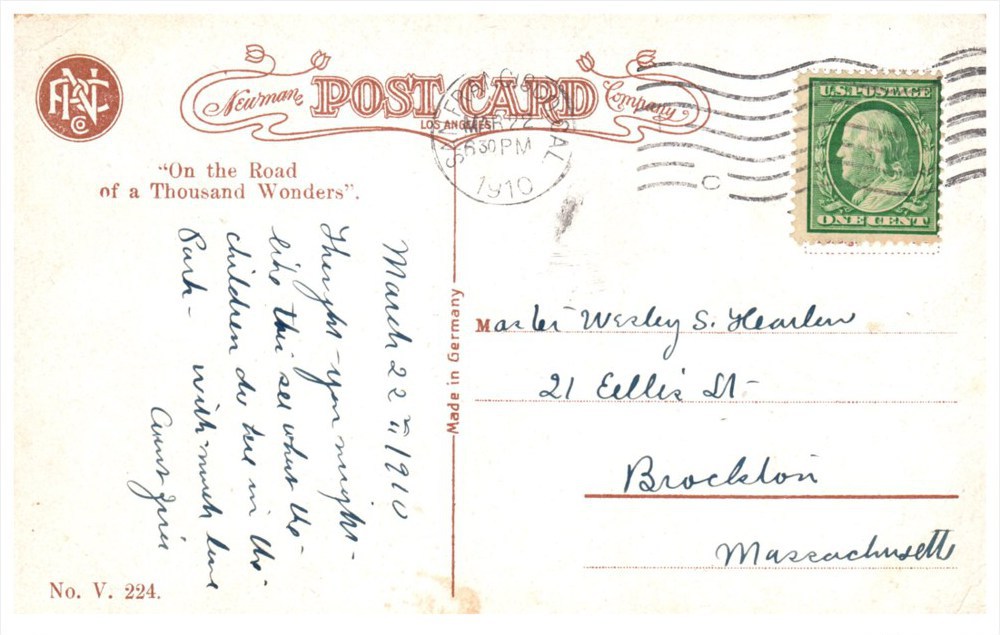 Newman POST CARD Company
LOS ANGELES
"On the Road
of a Thousand Wonders".
MAR 22
6 30 PM
1910
U.S. POSTAGE
ONE CENT
March 22nd 1910
Thought you might
like this see what the
children do here in the
Park – with much love
Aunt
Made in Germany
Master Wesley S.
21 Ellis St –
Brockton
Massachusetts
No. V. 224.